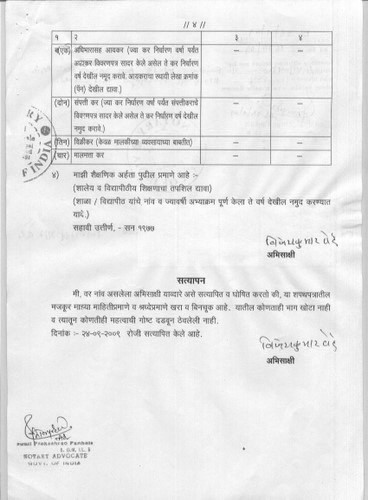 // ४ //
१ २ ३ ४
ब(एक) अधिभारासह आयकर (ज्या कर निर्धारण वर्षा पर्यंत – –
आयकर विवरणपत्र सादर केले असेल ते कर निर्धारण
वर्ष देखील नमुद करावे. आयकराचा स्थायी लेखा क्रमांक
(पॅन) देखील द्यावा.)
(दोन) संपत्ती कर (ज्या कर निर्धारण वर्षा पर्यंत संपत्तीकराचे – –
विवरणपत्र सादर केले असेल ते कर निर्धारण वर्ष देखील
नमुद करावे.)
(तिन) विक्रीकर (केवळ मालकीच्या व्यवसायाच्या बाबतीत) – –
(चार) मालमत्ता कर – –
४) माझी शैक्षणिक अर्हता पुढील प्रमाणे आहे :-
(शालेय व विद्यापीठीय शिक्षणाचा तपशिल द्यावा)
(शाळा / विद्यापीठ यांचे नांव व ज्यावर्षी अभ्याक्रम पूर्ण केला ते वर्ष देखील नमुद करण्यात
यावे.)
सहावी उत्तीर्ण, - सन १९७७
अभिसाक्षी
सत्यापन
मी, वर नांव असलेला अभिसाक्षी याव्दारे असे सत्यापित व घोषित करतो की, या शपथपत्रातील
मजकूर माझ्या माहितीप्रमाणे व श्रध्देप्रमाणे खरा व बिनचूक आहे. यातील कोणताही भाग खोटा नाही
व त्यातून कोणतीही महत्वाची गोष्ट दडवून ठेवलेली नाही.
दिनांक :- २४-०९-२००९ रोजी सत्यापित केले आहे.
अभिसाक्षी
NOTARY ADVOCATE
GOVT. OF INDIA